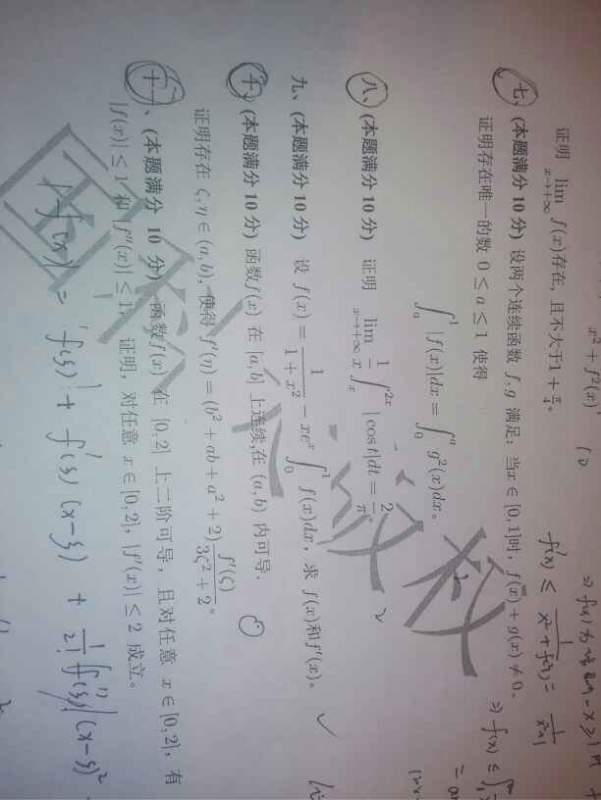 x² + f²(x)'
证明 lim_{x→+∞} f(x)存在，且不大于1 + π/4。
七、(本题满分 10 分) 设两个连续函数 f, g 满足：当x ∈ [0,1]时，f(x) + g(x) ≠ 0。
证明存在唯一的数 0 ≤ a ≤ 1 使得
∫_a^1 |f(x)|dx = ∫_0^a g²(x)dx。
八、(本题满分 10 分) 证明 lim_{x→+∞} 1/x ∫_x^{2x} |cos t|dt = 2/π。
九、(本题满分 10 分) 设 f(x) = 1/(1 + x²) − xeˣ ∫_0^1 f(x)dx，求 f(x)和f'(x)。
十、(本题满分 10 分) 函数f(x) 在 [a,b] 上连续,在 (a,b) 内可导.
证明存在 ζ, η ∈ (a,b)，使得 f'(η) = (b² + ab + a² + 2) f'(ζ)/(3ζ² + 2)。
十一、(本题满分 10 分) 函数f(x) 在 [0,2] 上二阶可导，且对任意 x ∈ [0,2]，有
|f(x)| ≤ 1 和 |f''(x)| ≤ 1。证明，对任意 x ∈ [0,2]，|f'(x)| ≤ 2 成立。
|f(x)| = f(ξ) + f'(ξ)(x−ξ) + 1/2! f''(ξ)(x−ξ)²